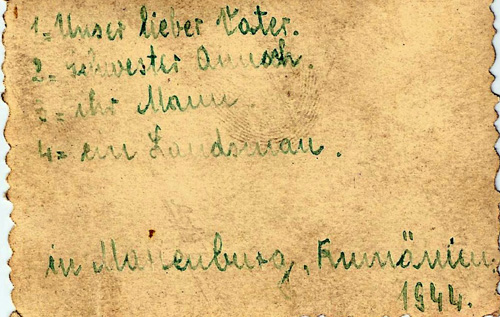 1= Unser lieber Vater.
2= schwester Annsch.
3= ihr Mann.
4= ein Landsman.
in Marienburg, Rumänien.
1944.